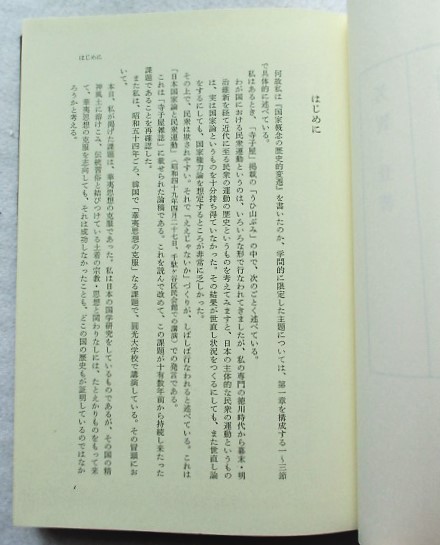 はじめに
はじめに
何故私は『国家概念の歴史的変遷』を書いたのか、学問的に限定した主題については、第一章を構成する一〜三節
で具体的に述べている。
私はあるとき、「寺子屋」掲載の「うひ山ぶみ」の中で、次のごとく述べている。
わが国における民衆運動というのは、いろいろな形で行なわれてきましたが、私の専門の徳川時代から幕末・明
治維新を経て近代に至る民衆の運動の歴史というものを考えてみますと、日本の主体的な民衆の運動というもの
は、実は国家論というものを十分持ち得ていなかった。その結果が世直し状況をつくるにしても、また世直し論
をするにしても、国家権力論を想定するところが非常に乏しかった。
その上で、民衆は欺されやすい。それで「ええじゃないか」づくりが、しばしば行なわれると述べている。これは
「日本国家論と民衆運動」（昭和四十九年四月二十七日、千駄ケ谷区民会館での講演）での発言である。
これは『寺子屋雑誌』に載せられた論稿である。これを読んで改めて、この課題が十有数年前から持続し来たった
課題であることを再確認した。
また私は、昭和五十四年ごろ、韓国で「華夷思想の克服」なる課題で、圓光大学校で講演している。その冒頭にお
いて、
本日、私が掲げた課題は、華夷思想の克服であった。私は日本の国学研究をしているものであるが、その国の精
神風土に溶けこみ、伝統習俗と結びつけている土着の宗教・思想と関わりなしには、たとえかりものをもって来
て、華夷思想の克服を志向しても、それは成功しなかったことも、どこの国の歴史もが証明しているのではなか
ろうかと考える。